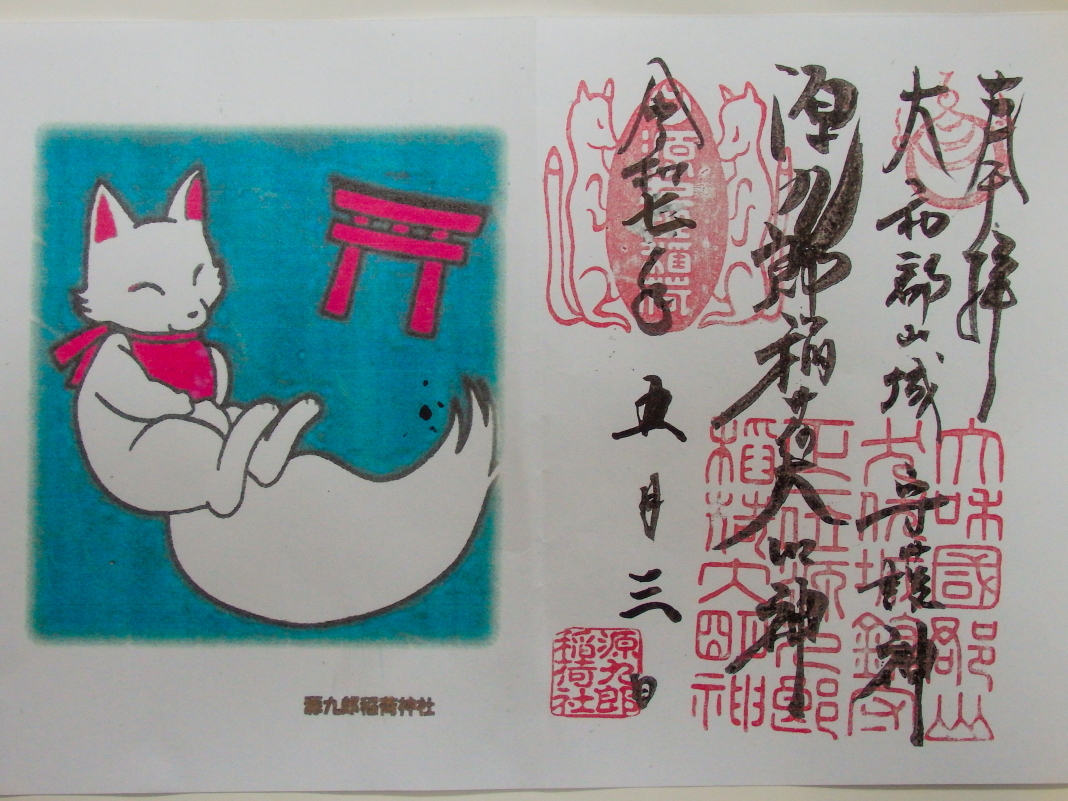 奉拝
大和郡山城 守護神
源九郎稲荷大明神
令和七年 五月三日
大和國郡山
大保城鎮守
正一位源九郎
稲荷大明神
源九郎
稲荷社
源九郎稲荷神社